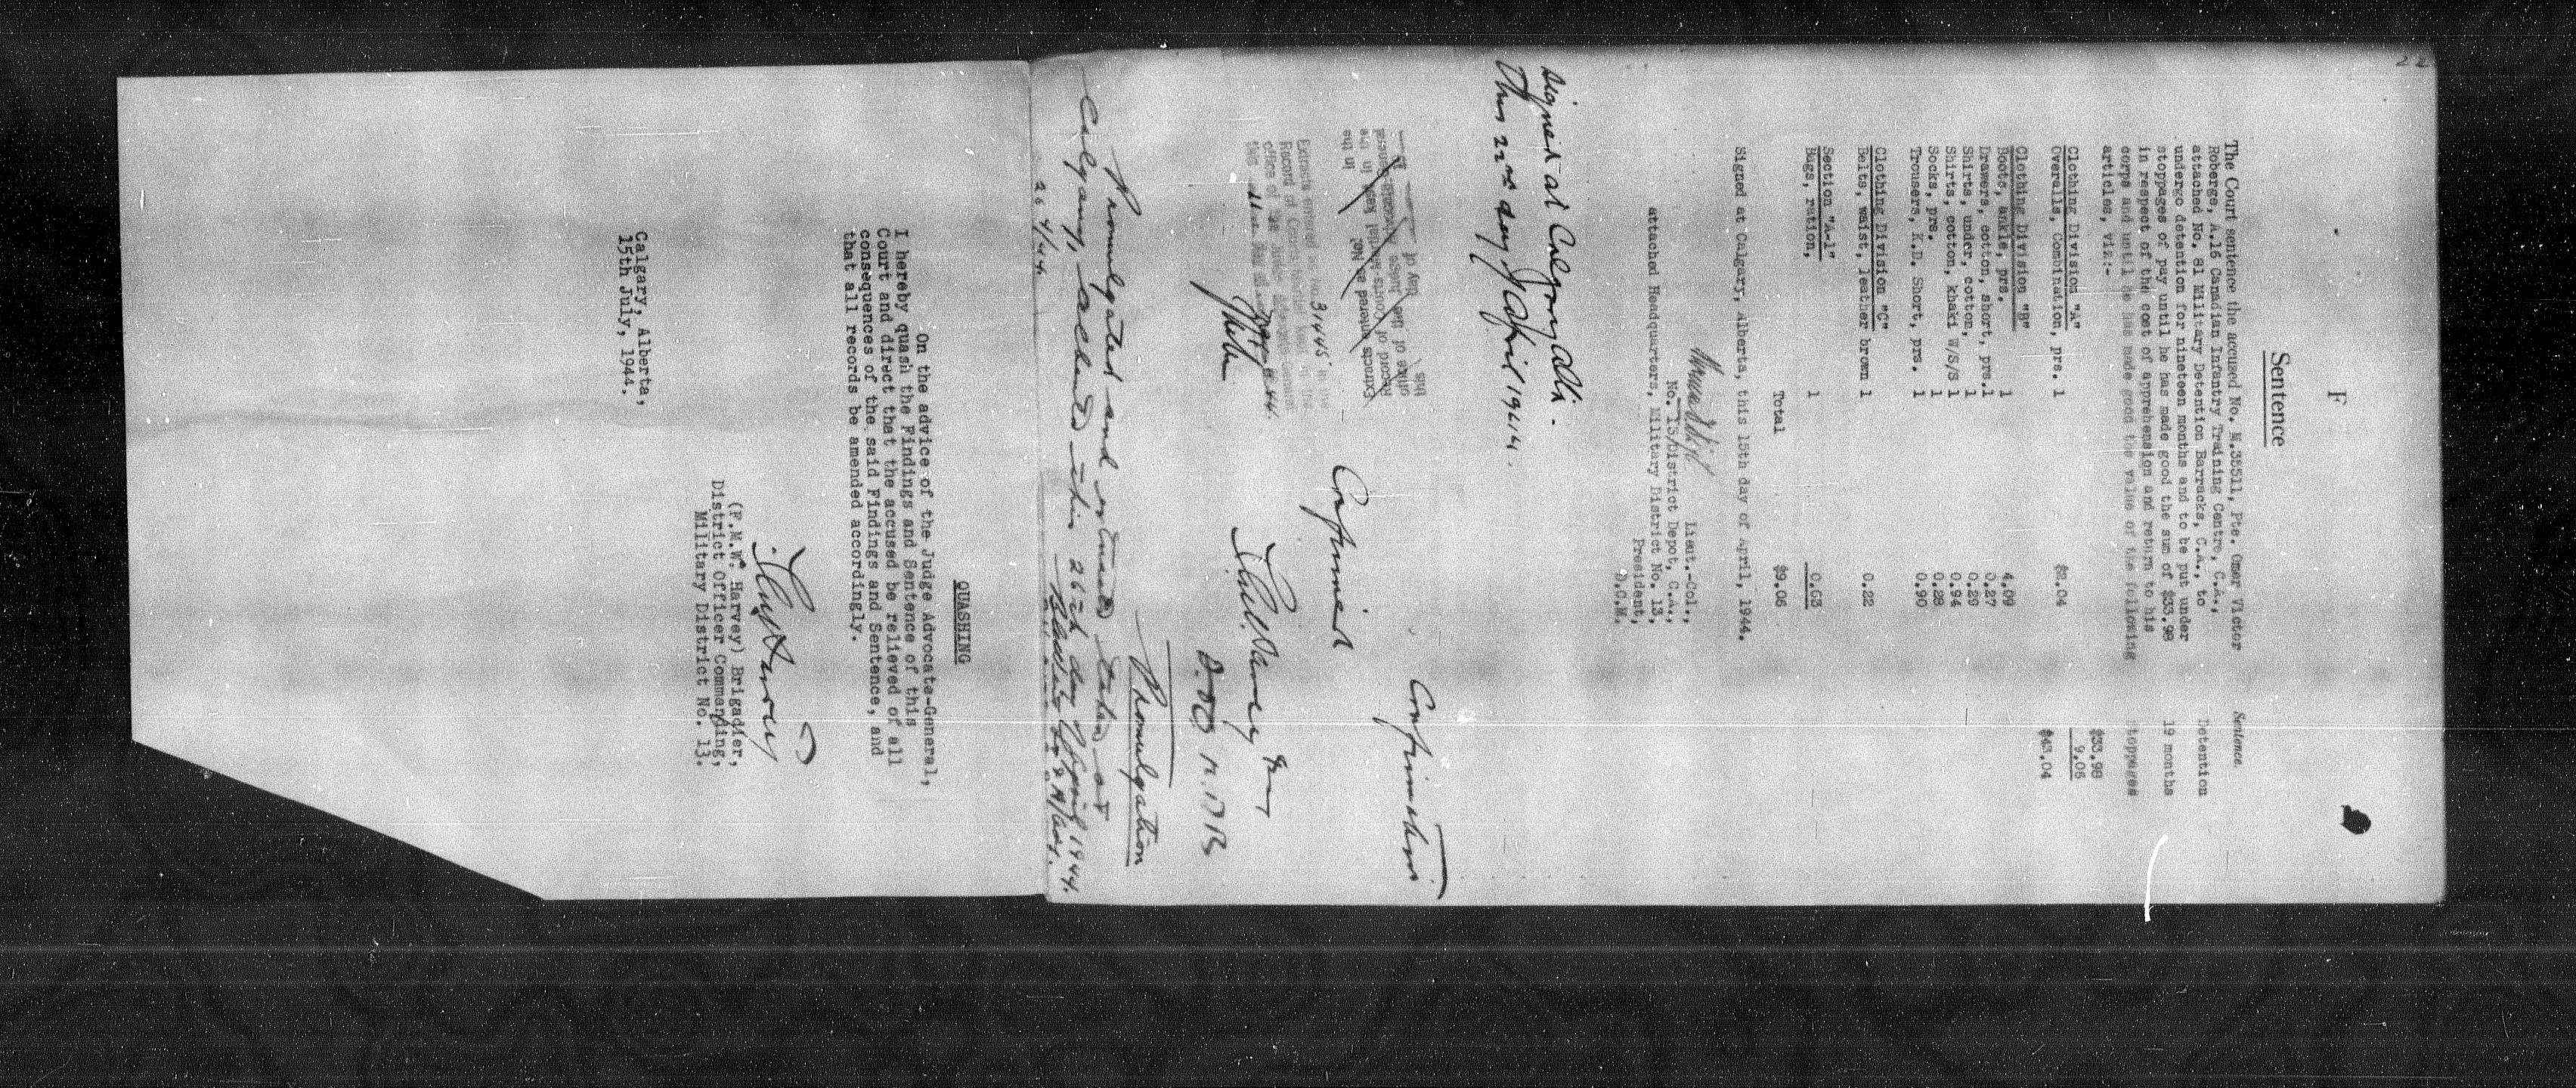 22
F
Sentence
The Court sentence the accused No. M.35511, Pte. Omer Victor
Roberge, A.16 Canadian Infantry Training Centre, C.A.,
attached No. 81 Military Detention Barracks, C.A., to
undergo detention for nineteen months and to be put under
stoppages of pay until he has made good the sum of $33.98
in respect of the cost of apprehension and return to his
corps and until he has made good the value of the following
articles, viz:-
Sentence.
Detention
19 months
stoppages
$33.98
9.06
$43.04
Clothing Division "A"
Overalls, Combination, prs. 1 $2.04
Clothing Division "B"
Boots, ankle, prs. 1 4.09
Drawers, cotton, short, prs.1 0.27
Shirts, under, cotton, 1 0.29
Shirts, cotton, khaki W/S/S 1 0.94
Socks, prs. 1 0.28
Trousers, K.D. Short, prs. 1 0.90
Clothing Division "C"
Belts, waist, leather brown 1 0.22
Section "A-1"
Bags, ration, 1 0.63
Total $9.06
Signed at Calgary, Alberta, this 15th day of April, 1944.
Lieut.-Col.,
No. 13 District Depot, C.A.,
attached Headquarters, Military District No. 13,
President,
D.C.M.
Signed at Calgary Alta.
This 22nd day of April 1944.
Confirmation
Confirmed
Extracts entered as No. in the
Record of Courts-Martial kept in the
office of the Judge Advocate-General
this day of
Extracts entered as No. 31445 in the
Record of Courts-Martial kept in the
office of the Judge Advocate-General
this 11 day of 44
D.O.C. M.D. 13
Promulgation
Promulgated and extracts taken at
Calgary, Alberta this 26th day of April 1944.
26/4/44.
QUASHING
On the advice of the Judge Advocate-General,
I hereby quash the Findings and Sentence of this
Court and direct that the accused be relieved of all
consequences of the said Findings and Sentence, and
that all records be amended accordingly.
(F.M.W. Harvey) Brigadier,
District Officer Commanding,
Military District No. 13.
Calgary, Alberta,
15th July, 1944.